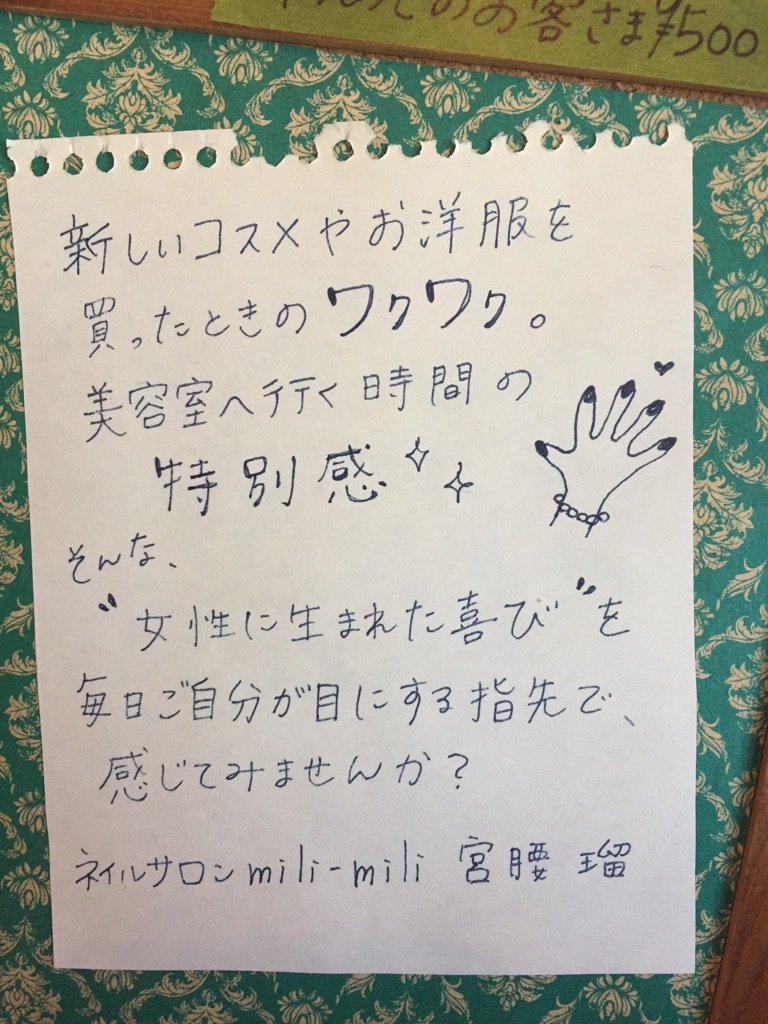 のお客さま¥500
新しいコスメやお洋服を
買ったときのワクワク。
美容室へ行く時間の
特別感
そんな、
〝女性に生まれた喜び〞を
毎日ご自分が目にする指先で、
感じてみませんか?
ネイルサロンmili-mili 宮腰 瑠